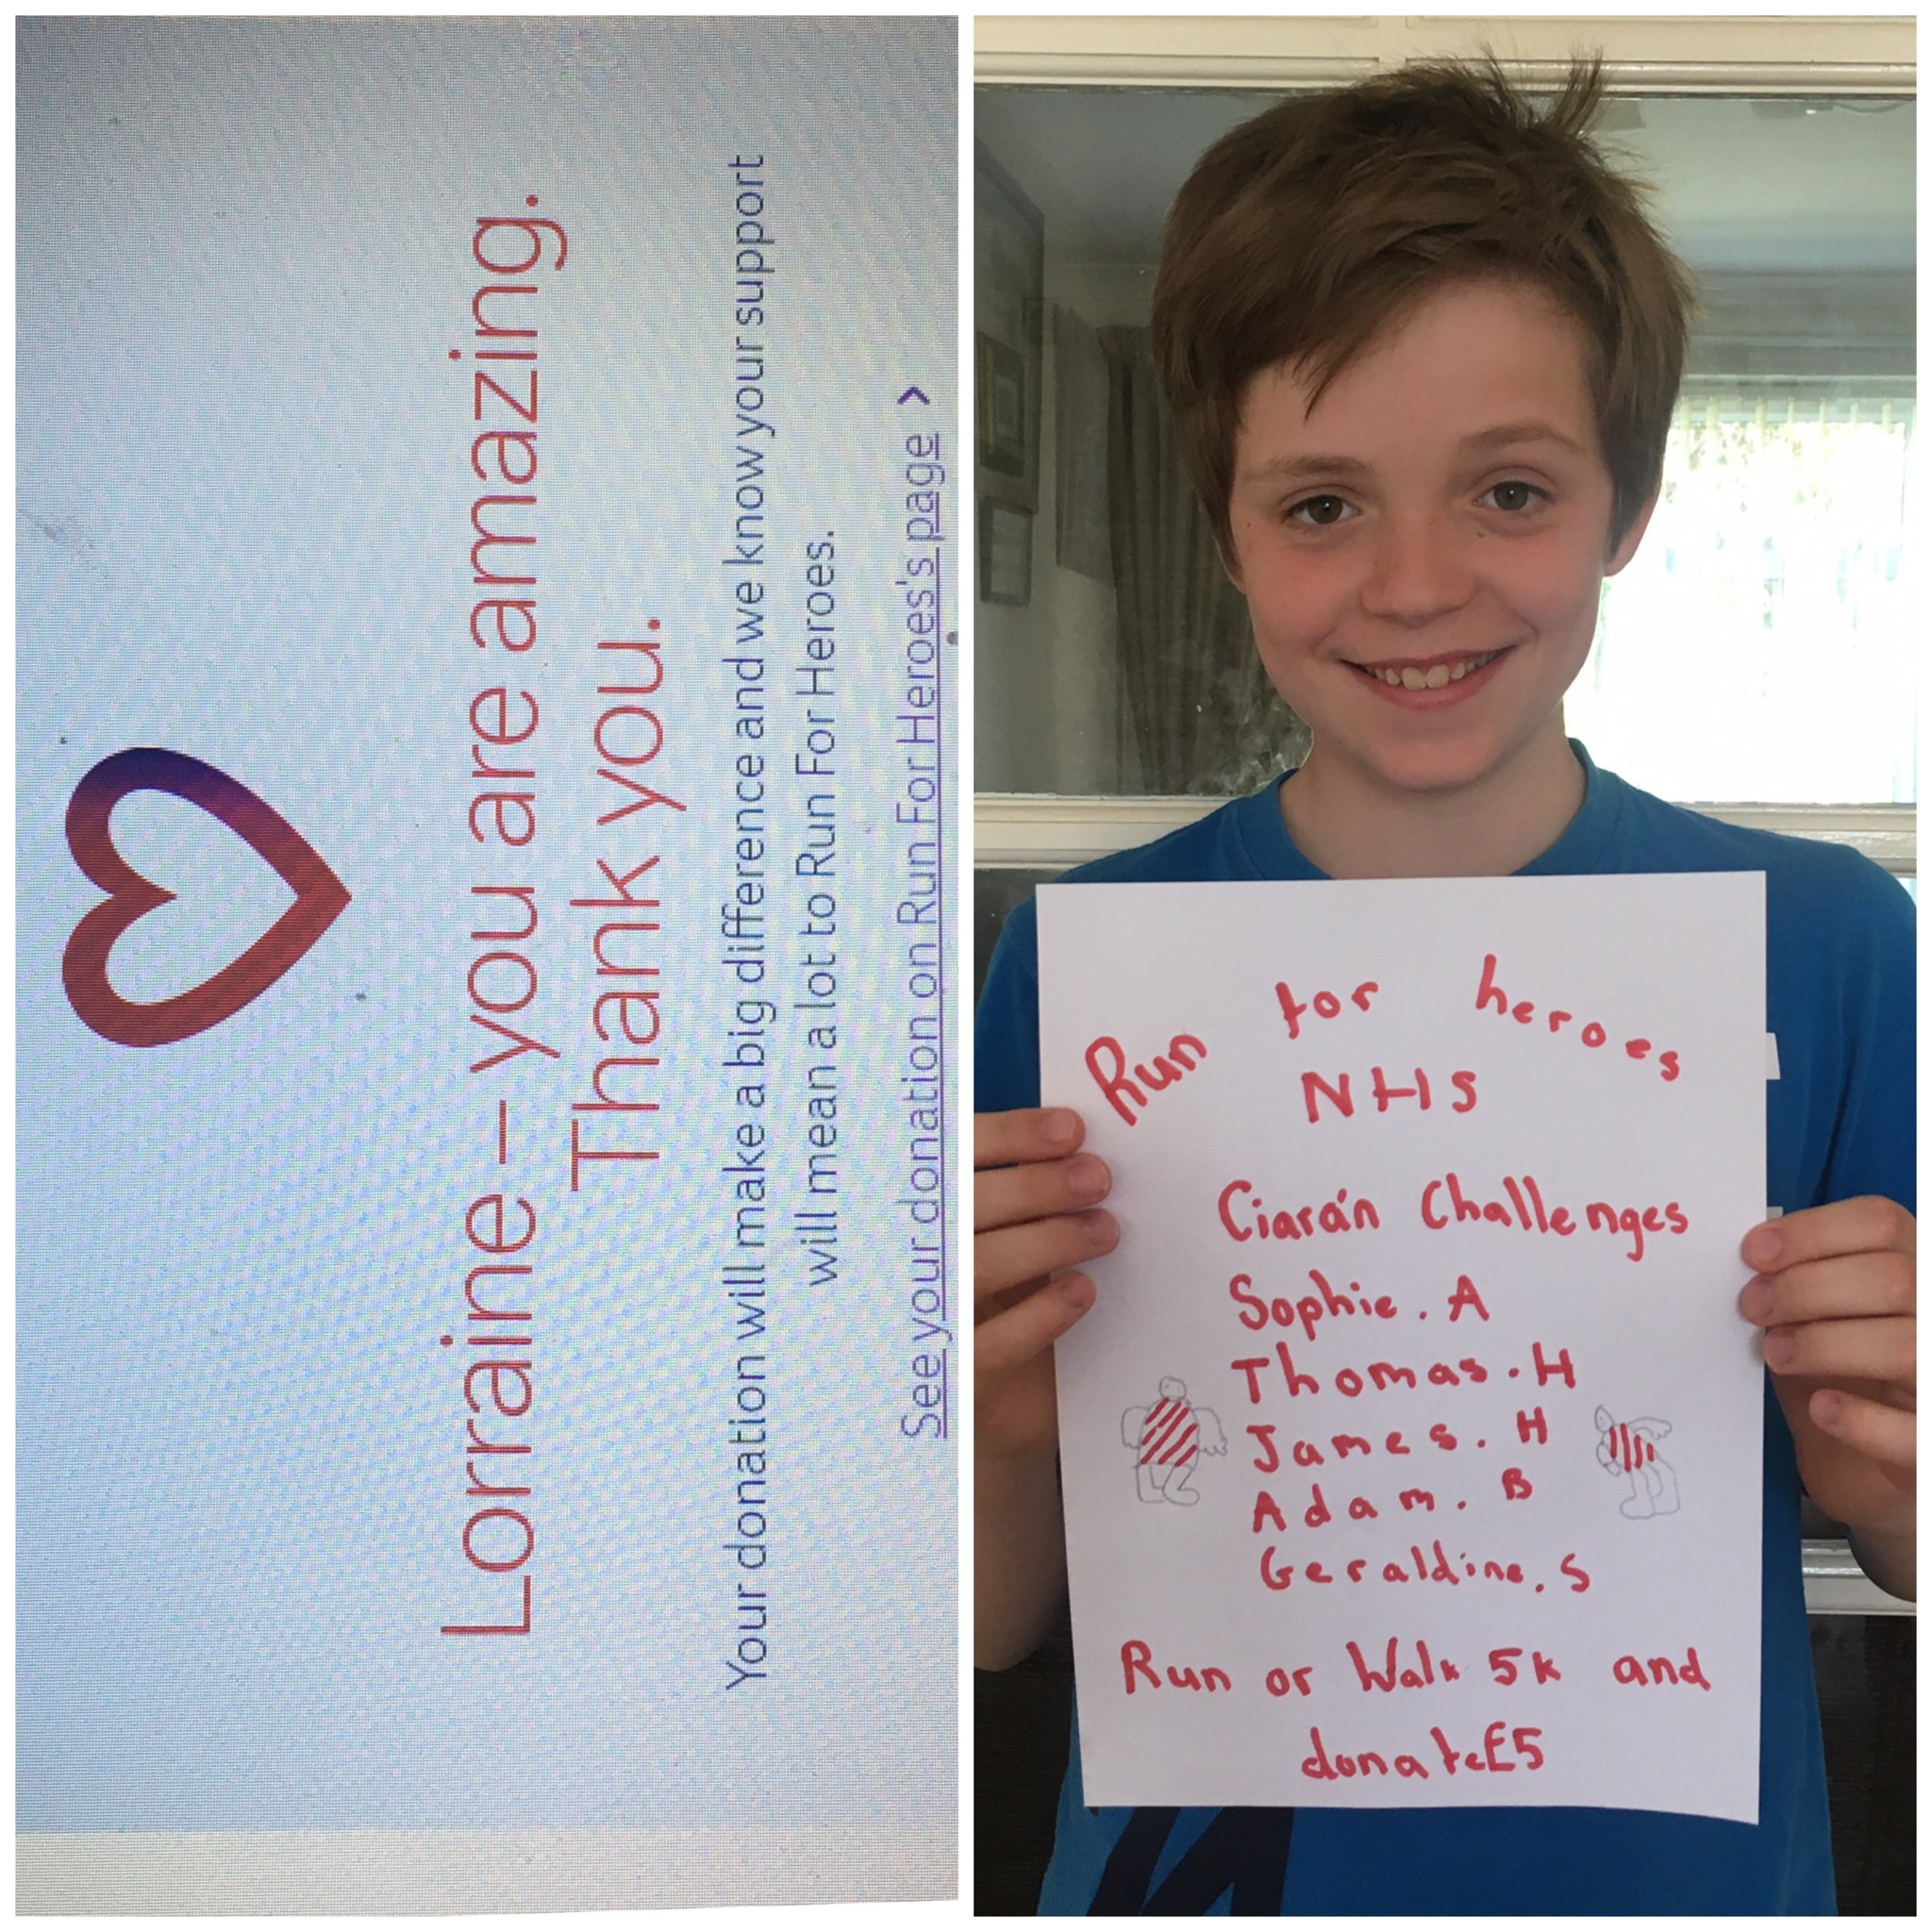 Lorraine – you are amazing.
Thank you.
Your donation will make a big difference and we know your support
will mean a lot to Run For Heroes.
See your donation on Run For Heroes's page >
Run for heroes
NHS
Ciarán Challenges
Sophie. A
Thomas. H
James. H
Adam. B
Geraldine. S
Run or Walk 5k and
donate£5